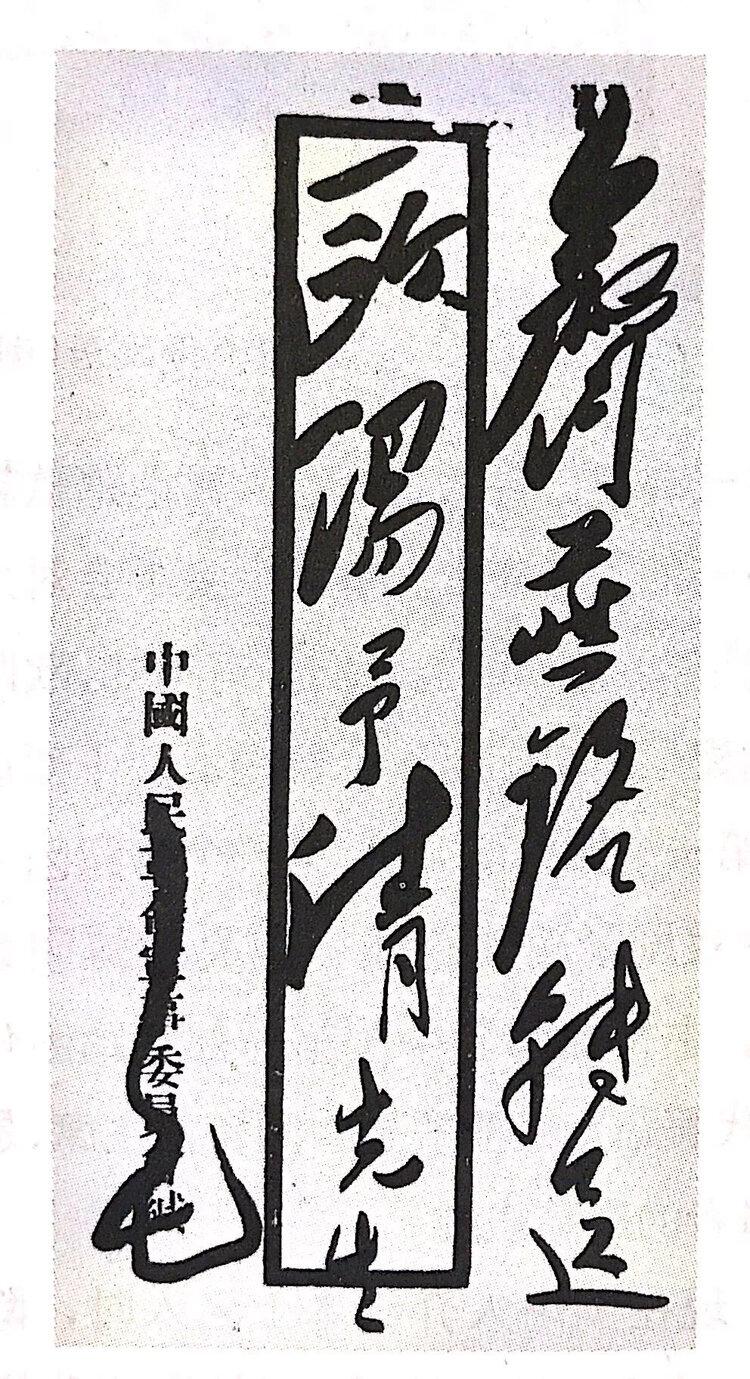 齊燕銘轉
欧陽予倩先生
中國人民革命軍事委員會緘
毛